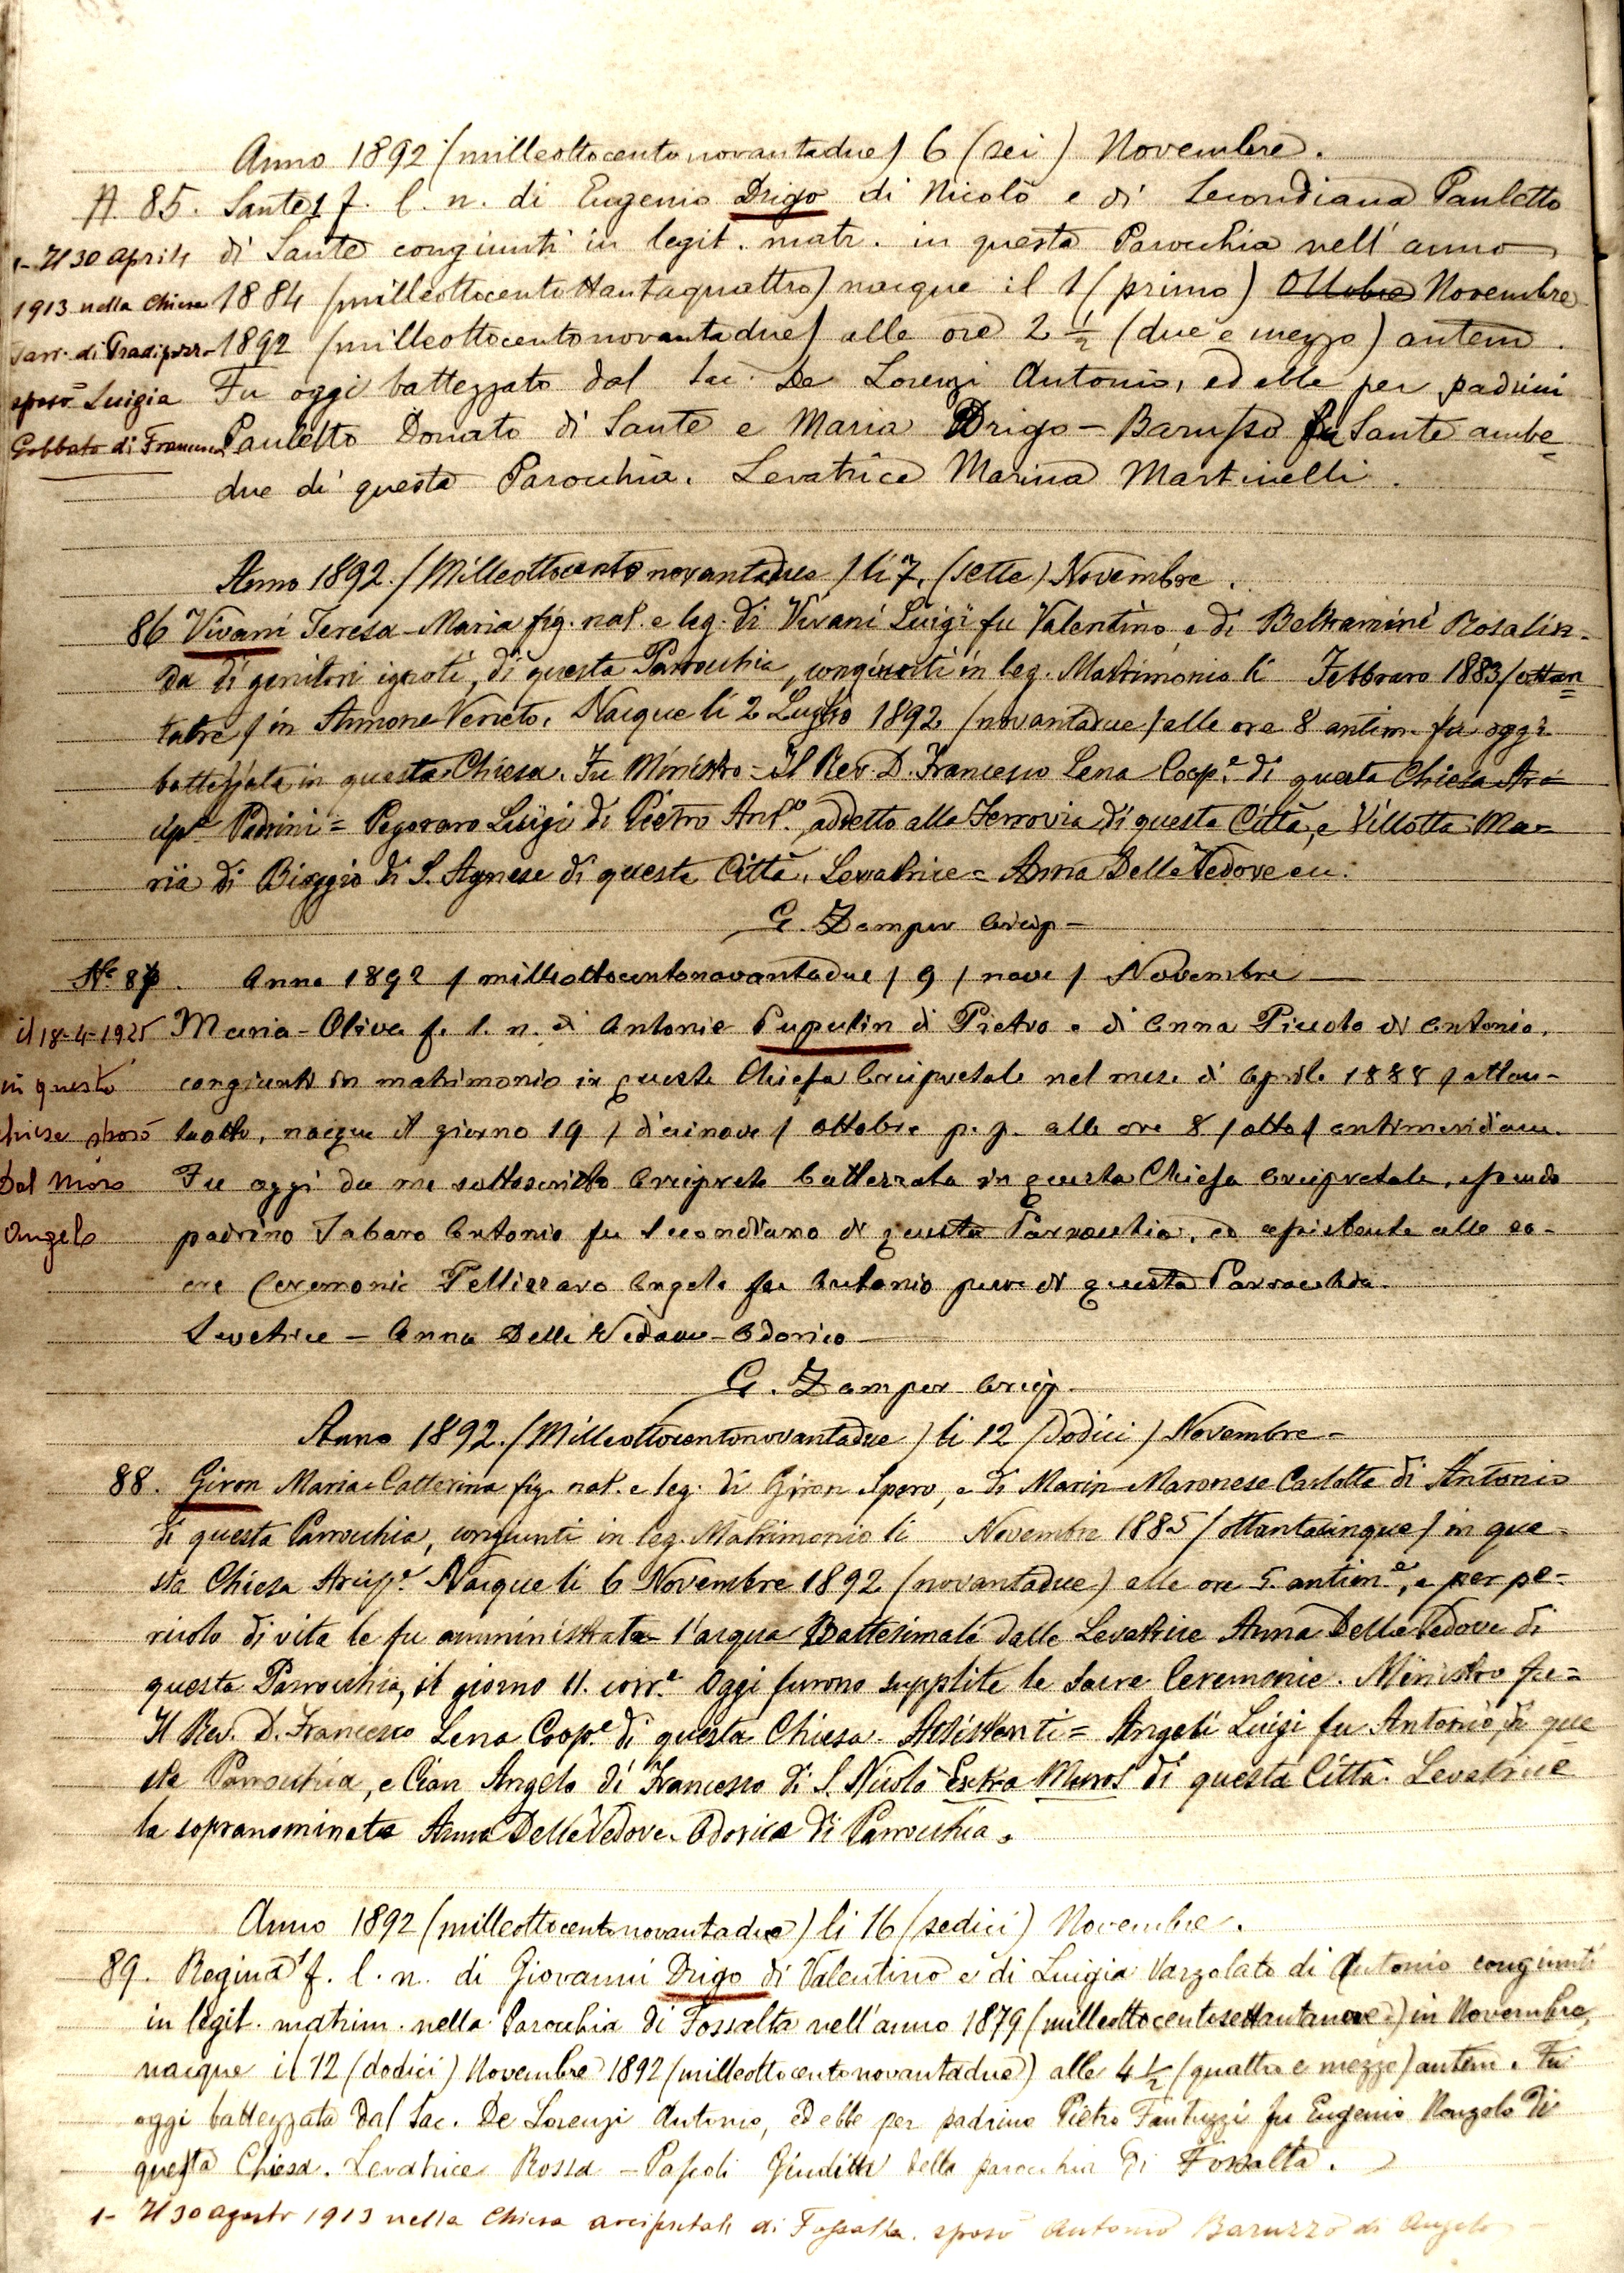 Anno 1892 (milleottocentonovantadue) 6 (sei) Novembre.
N. 85. Sante 1 f. l. n. di Eugenio Drigo di Nicolò e di Secondiana Pauletto
di Sante congiunti in legit. matr. in questa Parocchia nell'anno
1884 (milleottocentottantaquattro) nacque il 1 (primo) Ottobre Novembre
1892 (milleottocentonovantadue) alle ore 2 1/2 (due e mezzo) antem.
Fu oggi battezzato dal Sac. De Lorenzi Antonio, ed ebbe per padrini
Pauletto Donato di Sante e Maria Drigo - Barusso fu Sante ambe=
due di questa Parocchia. Levatrice Marina Martinelli.
1- Il 30 Aprile
1913 nella Chiesa
Parr. di Pradipozzo
sposò Luigia
Gobbato di Francesco
Anno 1892. (Milleottocentonovantadue) li 7. (sette) Novembre.
86 Vivani Teresa-Maria fig. nat. e leg. di Vivani Luigi fu Valentino e di Beltramini Rosalin-
da di genitori ignoti, di questa Parrocchia, congiunti in leg. Matrimonio li Febbraro 1883 /ottan=
tatre/ in Annone Veneto. Nacque li 2 Luglio 1892 /novantadue/ alle ore 8 antim. fu oggi
battezzata in questa Chiesa. Fu Ministro - Il Rev. D. Francesco Lena Coop.e di questa Chiesa Ar=
cip.e Padrini = Pegoraro Luigi di Pietro Ant.o addetto alla Ferrovia di questa Città, e Villotta Ma=
ria di Biaggio di S. Agnese di questa Città. Levatrice = Anna Delle Vedove
G. Zamper Arcip-
No. 87. Anno 1892 / milleottocentonovantadue / 9 / nove / Novembre —
Maria-Oliva f. l. n. di Antonio Pupulin di Pietro e di Anna Piccolo di Antonio,
congiunti in matrimonio in questa Chiesa Arcipretale nel mese di Aprile 1888 / ottan-
tuotto, nacque il giorno 19 / diecinove / Ottobre p. p. alle ore 8 / otto / antimeridiane.
Fu oggi da me sottoscritto Arciprete battezzata in questa Chiesa Arcipretale, essendo
padrino Tabaro Antonio fu Secondiano di questa Parrocchia, ed assistente alle sa-
cre Ceremonie Pellizzaro Angelo fu Antonio pure di questa Parrocchia.
Levatrice - Anna Delle Vedove - Odorico —
il 18-4-1925
in questa
chiesa sposò
Dal Moro
Angelo
G. Zamper Arcip.
Anno 1892. /Milleottocentonovantadue/ li 12 /Dodici/ Novembre -
88. Giron Maria-Catterina fig. nat. e leg. di Giron Spero, e di Marin-Maronese Carlotta di Antonio
di questa Parrocchia, congiunti in leg. Matrimonio li Novembre 1885 /ottantacinque/ in que=
sta Chiesa Arcip.e Nacque li 6 Novembre 1892 (novantadue) alle ore 5. antim.e, e per pe=
ricolo di vita le fu amministrata l'acqua Battesimale dalla Levatrice Anna Delle Vedove di
questa Parrocchia, il giorno 11. corr.e Oggi furono supplite le Sacre Ceremonie. Ministro fu=
Il Rev. D. Francesco Lena Coop.e di questa Chiesa. Assistenti = Angeli Luigi fu Antonio di que
sta Parrocchia, e Cian Angelo di Francesco di S. Nicolò Extra Muros di questa Città. Levatrice
la sopranominata Anna Delle Vedove-Odorico di Parrocchia.
Anno 1892 (milleottocentonovantadue) li 16 (sedici) Novembre.
89. Regina 1 f. l. n. di Giovanni Drigo di Valentino e di Luigia Varzolato di Antonio congiunti
in legit. matrim. nella Parocchia di Fossalta nell'anno 1879 (milleottocentosettantanove) in Novembre,
nacque il 12 (dodici) Novembre 1892 (milleottocentonovantadue) alle 4 1/2 (quattro e mezzo) antem. Fu
oggi battezzata dal Sac. De Lorenzi Antonio, ed ebbe per padrino Pietro Fantuzzi fu Eugenio di
questa Chiesa. Levatrice Rossa - Papoli Giuditta della parocchia di Fossalta.
1- Il 30 Agosto 1913 nella Chiesa arcipretale di Fossalta sposò Antonio Baruzzo di Angelo